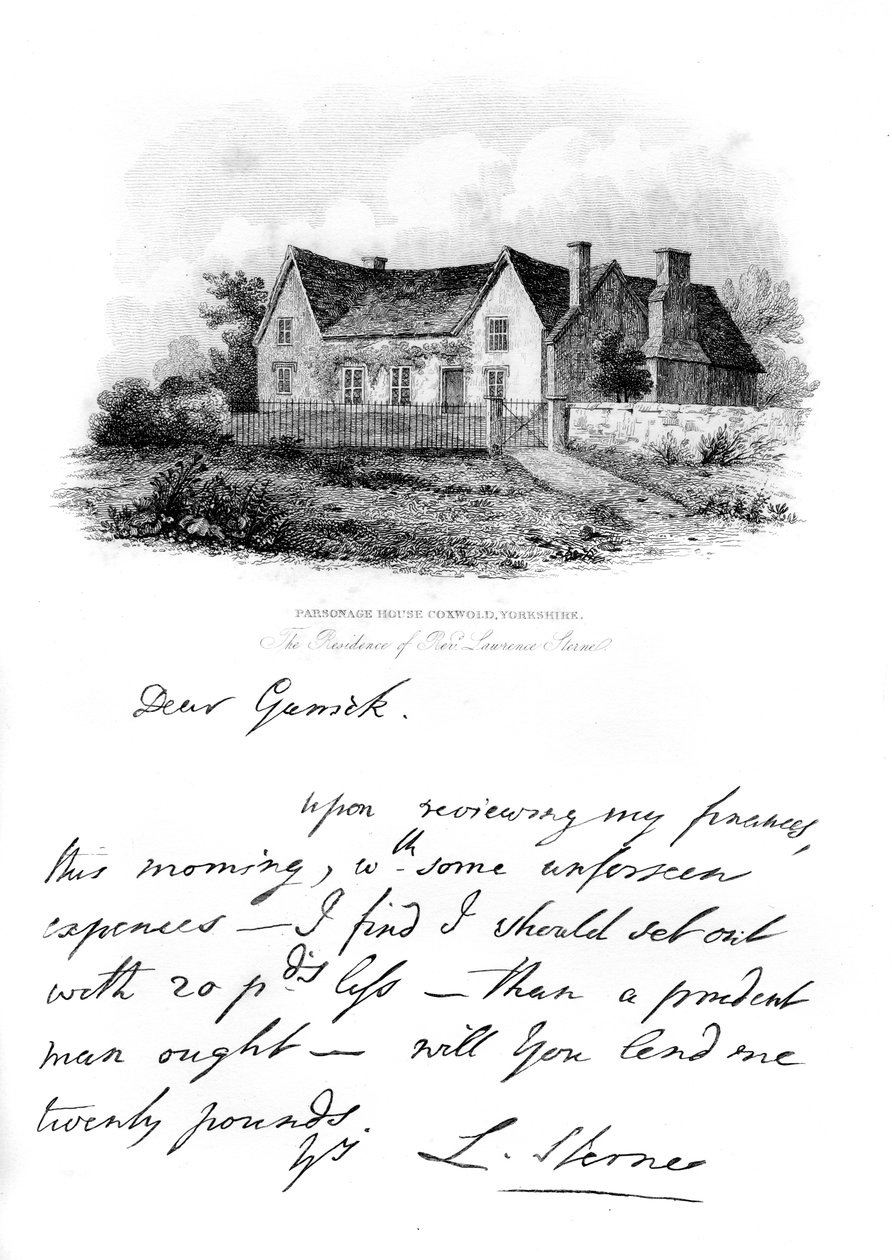 PARSONAGE HOUSE COXWOLD, YORKSHIRE.
The Residence of Revd. Lawrence Sterne.
Dear Garrick.
upon reviewing my finances,
this morning, wth some unforseen
expences — I find I should set out
with 20 pds less — than a prudent
man ought — will You lend me
twenty pounds.
Yrs. L. Sterne